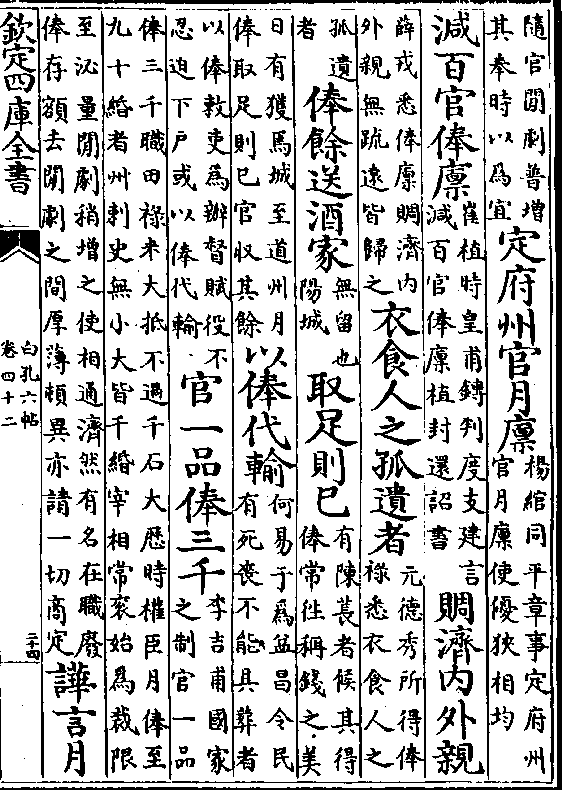 隨官閒劇普増
其奉時以為宜
定府州官月廩
楊綰同平章事定府州
官月廩使優狹相均
減百官俸廩
崔植時皇甫鏄判度支建言
減百官俸廩植封還詔書
賙濟内外親
薛戎悉俸廩賙濟内
外親無疏遠皆歸之
衣食人之孤遺者
元德秀所得俸
祿悉衣食人之
孤遺
者
俸餘送酒家
無留也
陽城
取足則已
有陳萇者候其得
俸常徃稱錢之美
日有獲焉城至道州月
俸取足則已官收其餘
以俸代輸
何易于為益昌令民
有死喪不能具葬者
以俸敕吏為辦督賦役不
忍迫下戸或以俸代輸
官一品俸三千
李吉甫國家
之制官一品
俸三千職田祿米大抵不過千石大厯時權臣月俸至
九十緡者州刺史無小大皆千緡宰相常衮始為裁限
至沁量閒劇稍増之使相通濟然有名在職廢
俸存額去閒劇之間厚薄頓異亦請一切商定
譁言月
欽定四庫全書
白孔六帖
卷四十二
二十四